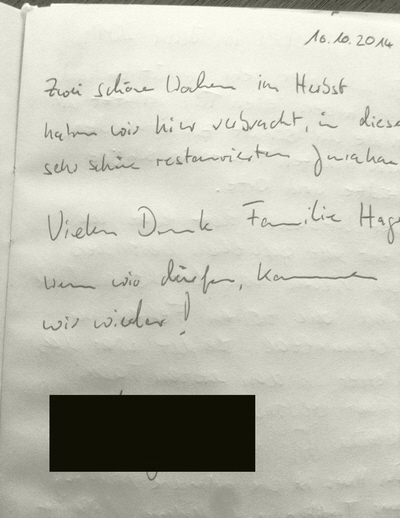 16.10.2014
Zwei schöne Wochen im Herbst
haben wir hier verbracht, in diese
sehr schön restaurierten Jurahau
Vielen Dank Familie Hag
wenn wir dürfen, kommen
wir wieder!